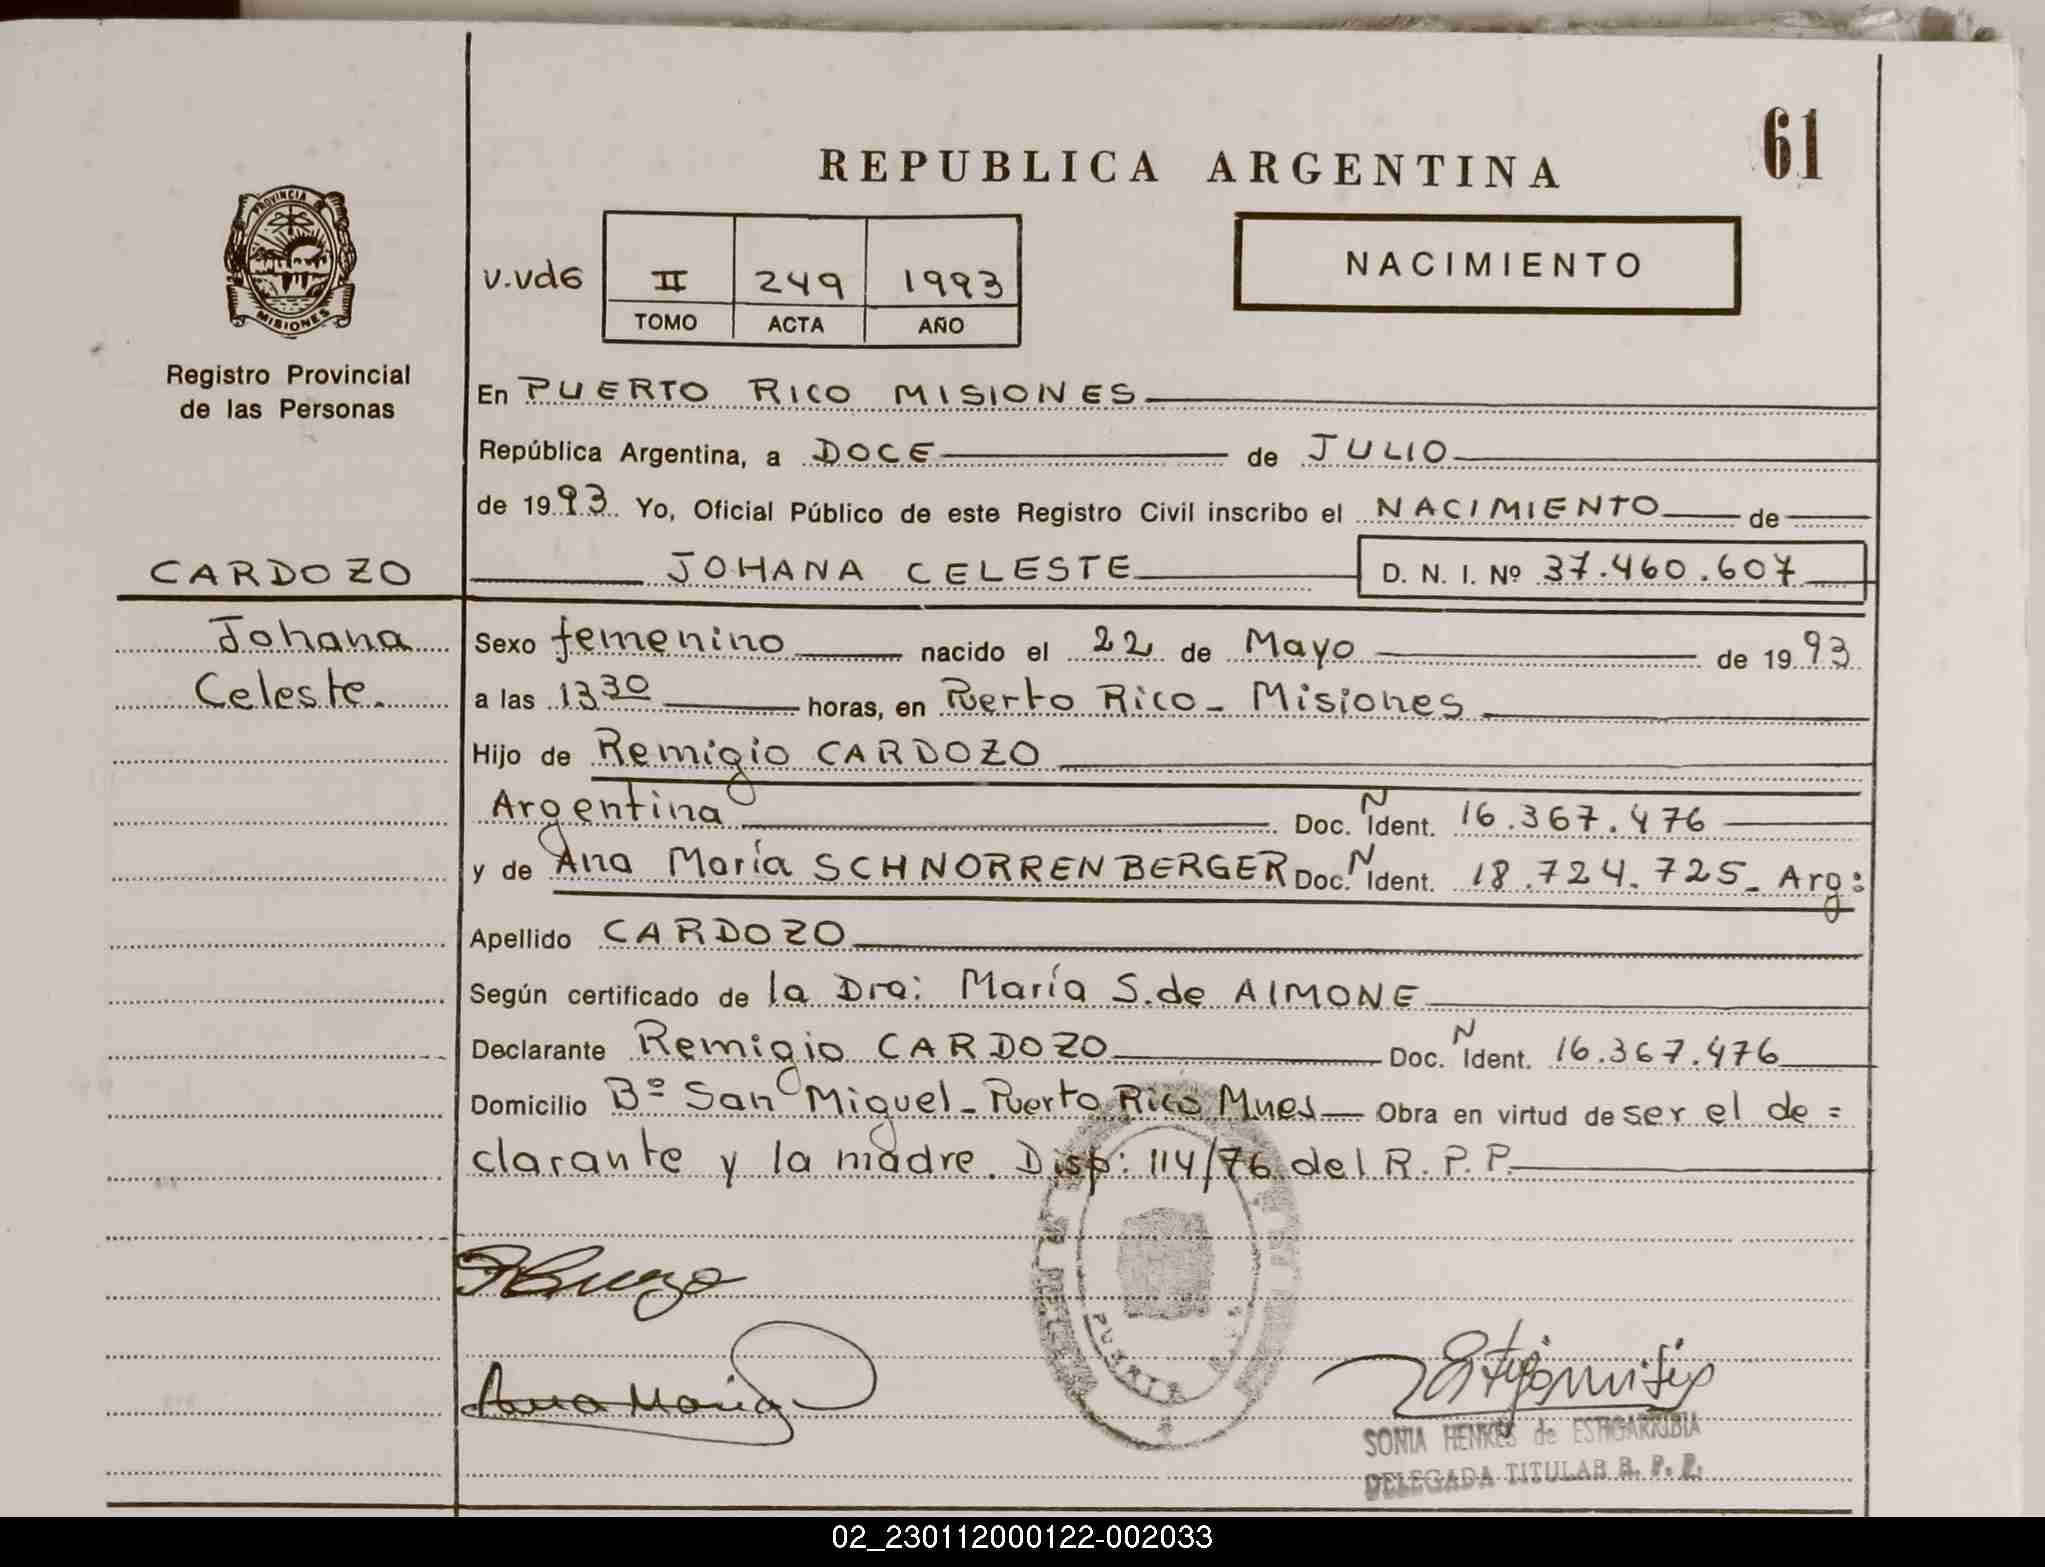 61
REPUBLICA ARGENTINA
PROVINCIA
MISIONES
Registro Provincial
de las Personas
v.vd6 II 249 1993
TOMO ACTA AÑO
NACIMIENTO
En PUERTO RICO MISIONES
República Argentina, a DOCE de JULIO
de 1993. Yo, Oficial Público de este Registro Civil inscribo el NACIMIENTO de
CARDOZO JOHANA CELESTE D. N. I. Nº 37.460.607
Johana Sexo femenino nacido el 22 de Mayo de 1993
Celeste. a las 13 30 horas, en Puerto Rico - Misiones
Hijo de Remigio CARDOZO
Argentina Doc. N Ident. 16.367.476
y de Ana María SCHNORRENBERGER Doc. N Ident. 18.724.725- Arg:
Apellido CARDOZO
Según certificado de la Dra: María S. de AIMONE
Declarante Remigio CARDOZO Doc. N Ident. 16.367.476
Domicilio Bº San Miguel - Puerto Rico Mnes Obra en virtud de ser el de=
clarante y la madre. Disp: 114/76 del R. P. P.
Ana Maria
PUERTO
SONIA HENKES de ESTIGARRIBIA
DELEGADA TITULAR R. P. P.
02_230112000122-002033